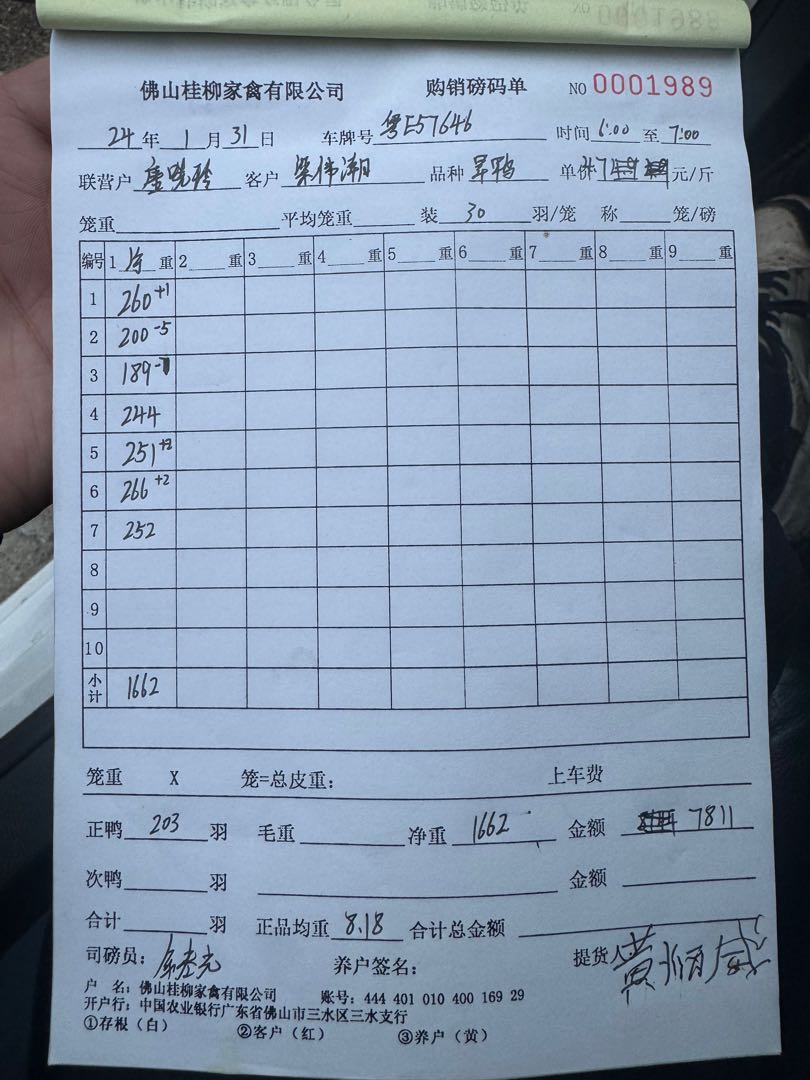 佛山桂柳家禽有限公司 购销磅码单 NO 0001989
24年 1月31日 车牌号 粤E57646 时间 6:00 至 7:00
联营户 客户 梁伟潮 品种 旱鸭 单价 元/斤
笼重 平均笼重 装 30 羽/笼 称 笼/磅
编号 1 净 重 2 重 3 重 4 重 5 重 6 重 7 重 8 重 9 重
1 260 +1
2 200 -5
3 189
4 244
5 251
6 266 +2
7 252
8
9
10
小计 1662
笼重 X 笼=总皮重: 上车费
正鸭 203 羽 毛重 净重 1662 金额 7811
次鸭 羽 金额
合计 羽 正品均重 8.18 合计总金额
司磅员: 养户签名: 提货人
户 名: 佛山桂柳家禽有限公司 账号: 444 401 010 400 169 29
开户行: 中国农业银行广东省佛山市三水区三水支行
①存根(白) ②客户(红) ③养户(黄)